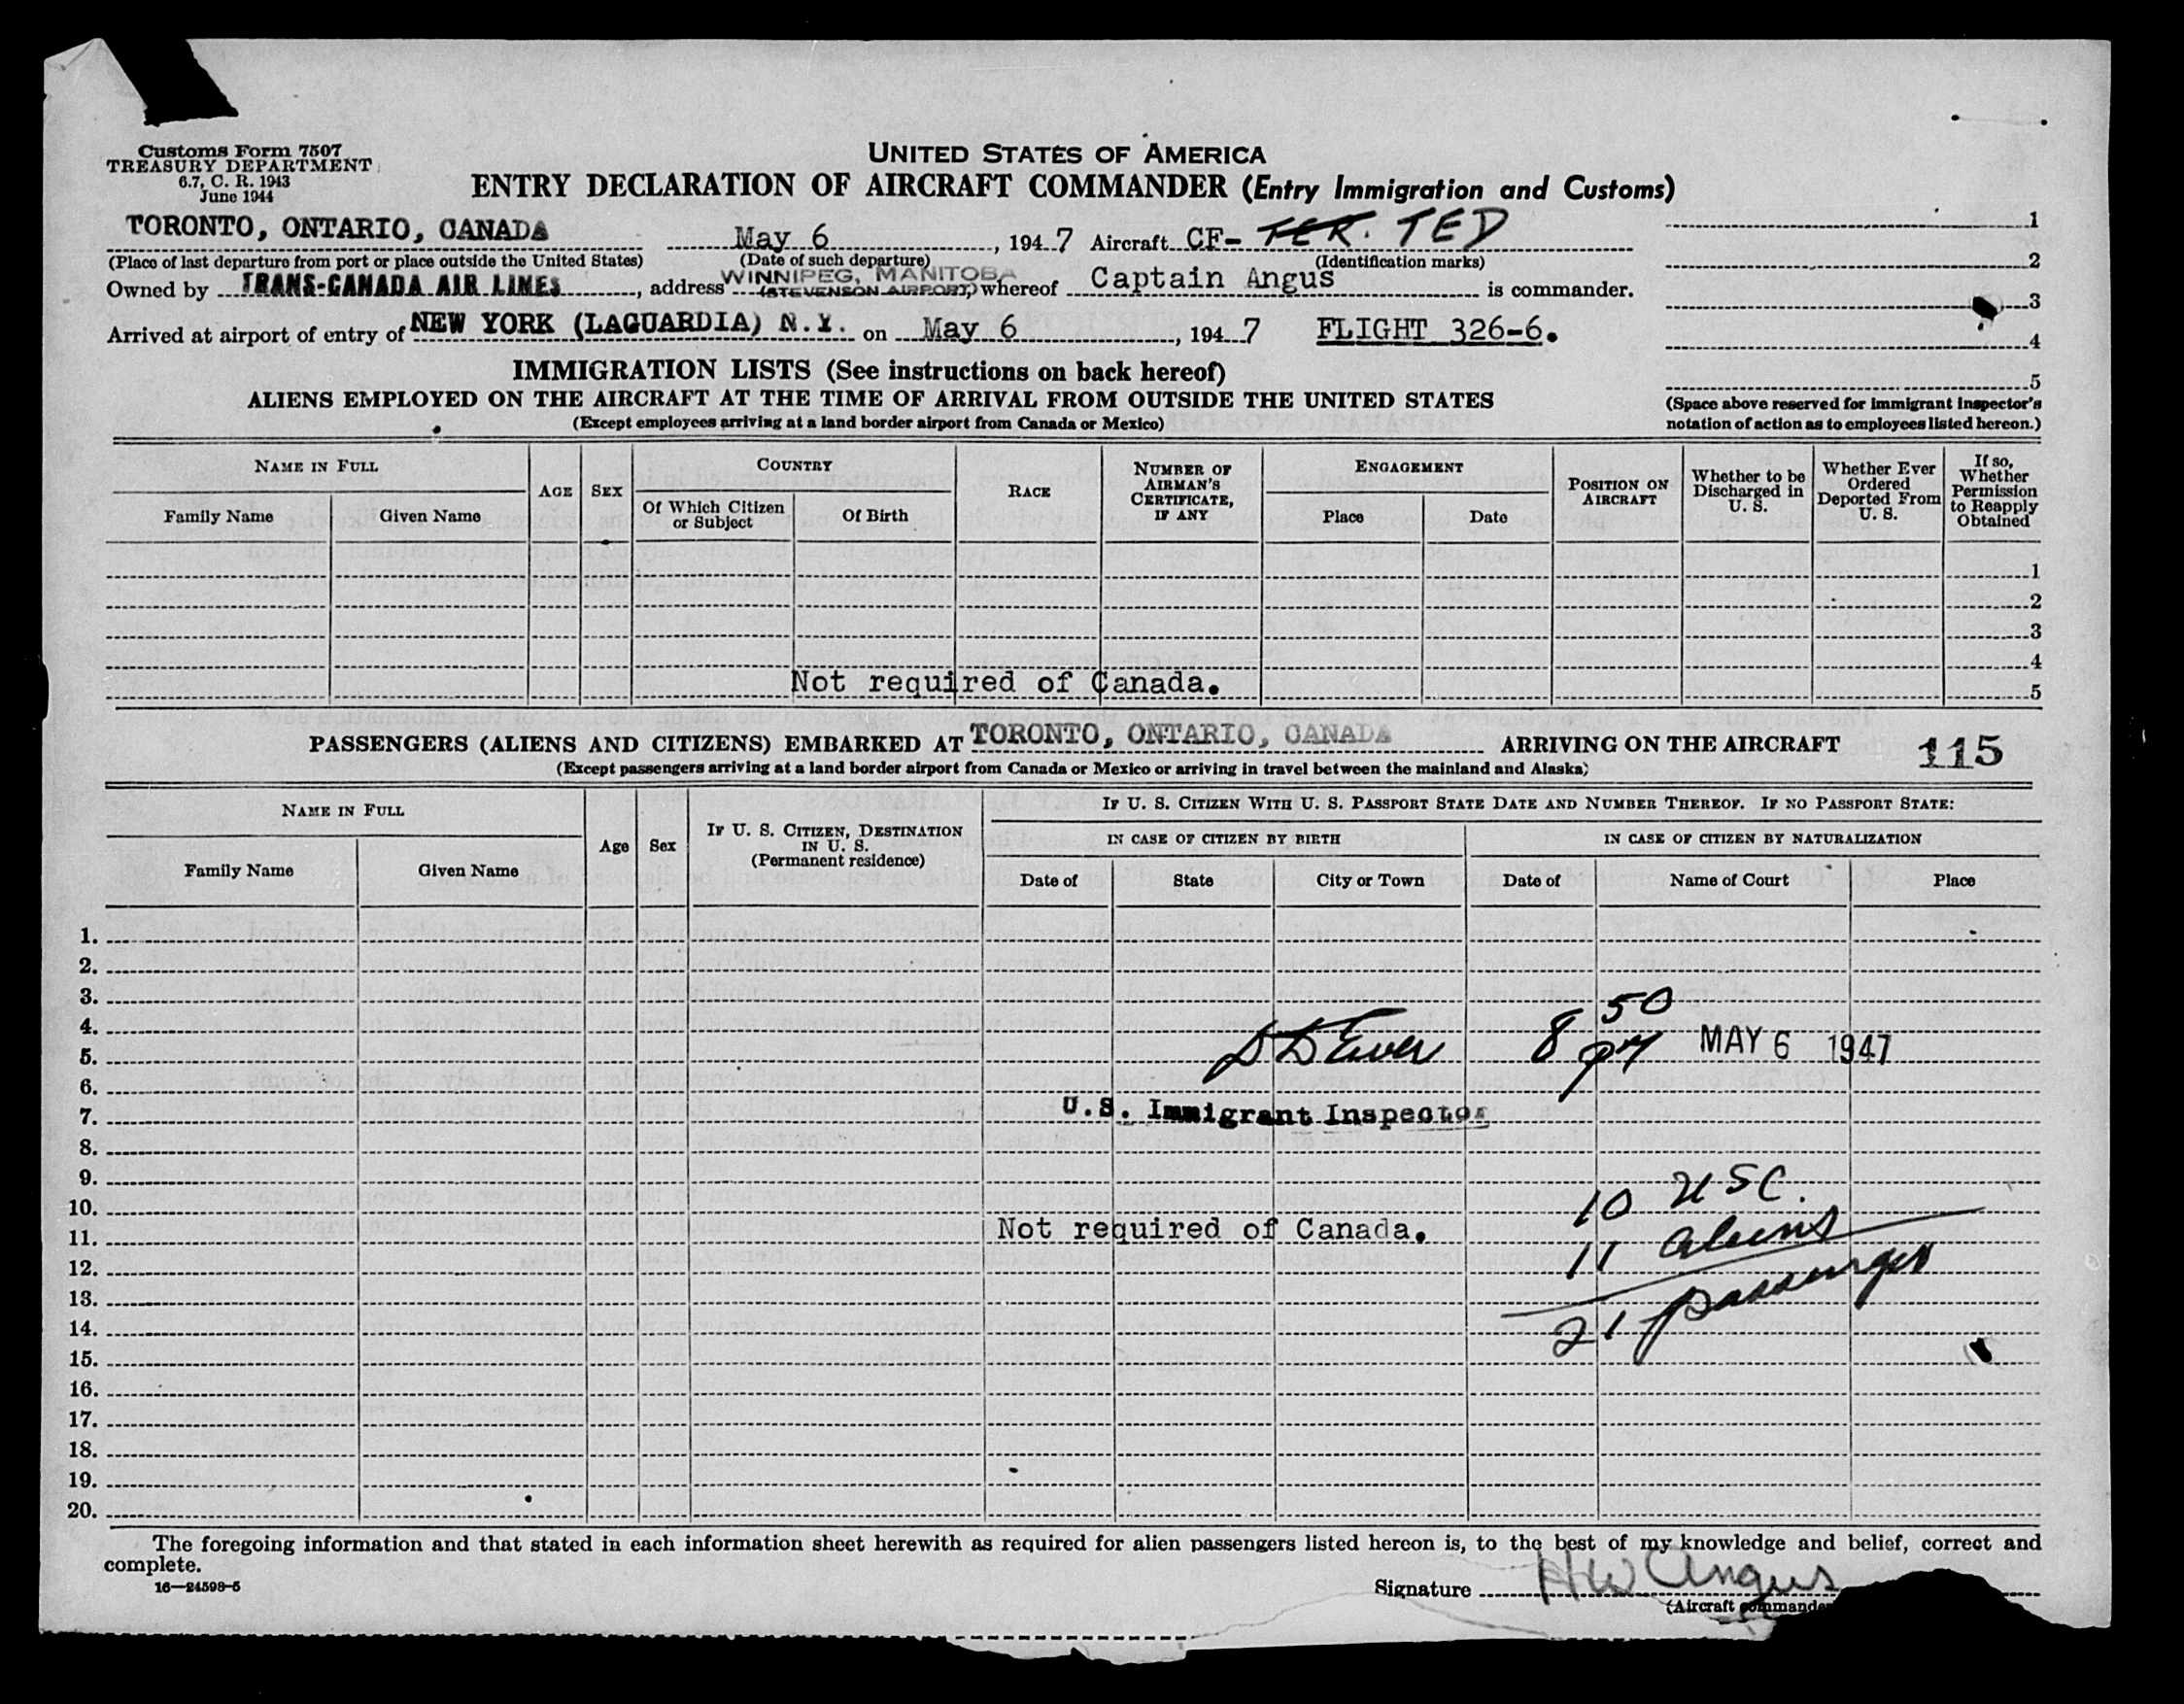 Customs Form 7507
TREASURY DEPARTMENT
6.7, C. R. 1943
June 1944
UNITED STATES OF AMERICA
ENTRY DECLARATION OF AIRCRAFT COMMANDER (Entry Immigration and Customs)
TORONTO, ONTARIO, CANADA May 6, 1947 Aircraft CF- TER. TED
(Place of last departure from port or place outside the United States) (Date of such departure) (Identification marks)
WINNIPEG, MANITOBA
Owned by TRANS-CANADA AIR LINES, address (STEVENSON AIRPORT) whereof Captain Angus is commander.
Arrived at airport of entry of NEW YORK (LAGUARDIA) N.Y. on May 6, 1947 FLIGHT 326-6.
1
2
3
4
5
(Space above reserved for immigrant inspector's
notation of action as to employees listed hereon.)
IMMIGRATION LISTS (See instructions on back hereof)
ALIENS EMPLOYED ON THE AIRCRAFT AT THE TIME OF ARRIVAL FROM OUTSIDE THE UNITED STATES
(Except employees arriving at a land border airport from Canada or Mexico)
NAME IN FULL
Family Name Given Name
AGE
SEX
COUNTRY
Of Which Citizen or Subject
Of Birth
RACE
NUMBER OF AIRMAN'S CERTIFICATE, IF ANY
ENGAGEMENT
Place Date
POSITION ON AIRCRAFT
Whether to be Discharged in U. S.
Whether Ever Ordered Deported From U. S.
If so, Whether Permission to Reapply Obtained
1
2
3
4
Not required of Canada.
5
PASSENGERS (ALIENS AND CITIZENS) EMBARKED AT TORONTO, ONTARIO, CANADA ARRIVING ON THE AIRCRAFT 115
(Except passengers arriving at a land border airport from Canada or Mexico or arriving in travel between the mainland and Alaska)
NAME IN FULL
Family Name Given Name
Age
Sex
IF U. S. CITIZEN, DESTINATION IN U. S. (Permanent residence)
IF U. S. CITIZEN WITH U. S. PASSPORT STATE DATE AND NUMBER THEREOF. IF NO PASSPORT STATE:
IN CASE OF CITIZEN BY BIRTH
Date of State City or Town
IN CASE OF CITIZEN BY NATURALIZATION
Date of Name of Court Place
1.
2.
3.
4.
5. 8 50 PM MAY 6 1947
6.
7. U.S. Immigrant Inspector
8.
9.
10. 10 USC.
11. Not required of Canada. 11 aliens
12.
13.
14. 21 passenger
15.
16.
17.
18.
19.
20.
The foregoing information and that stated in each information sheet herewith as required for alien passengers listed hereon is, to the best of my knowledge and belief, correct and
complete.
16—24598-5
Signature HW Angus
(Aircraft commander